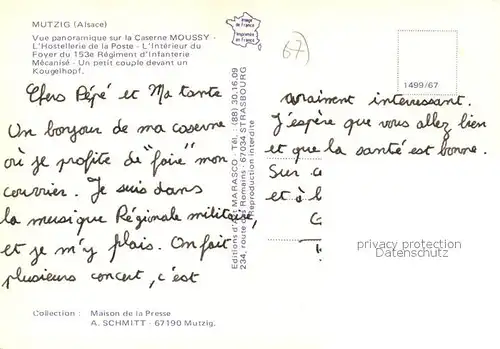 MUTZIG (Alsace)
Vue panoramique sur la Caserne MOUSSY -
L'Hostellerie de la Poste - L'Intérieur du
Foyer du 153e Régiment d'Infanterie
Mécanisé - Un petit couple devant un
Kougelhopf.
Chers Pépé et Ma tante
Un bonjour de ma caserne
où je profite de "faire" mon
courrier. Je suis dans
la musique Régionale militaire,
et je m'y plais. On fait
plusieurs concert, c'est
Collection : Maison de la Presse
A. SCHMITT - 67190 Mutzig.
Image
de France
Imprimée
en France
Editions d'Art MARASCO - Tél. : (88) 30.16.09
234, route des Romains - 67034 STRASBOURG
Reproduction interdite
67
1499/67
vraiment interessant.
J'espère que vous allez bien
et que la santé est bonne.
Sur
et à
privacy protection
Datenschutz